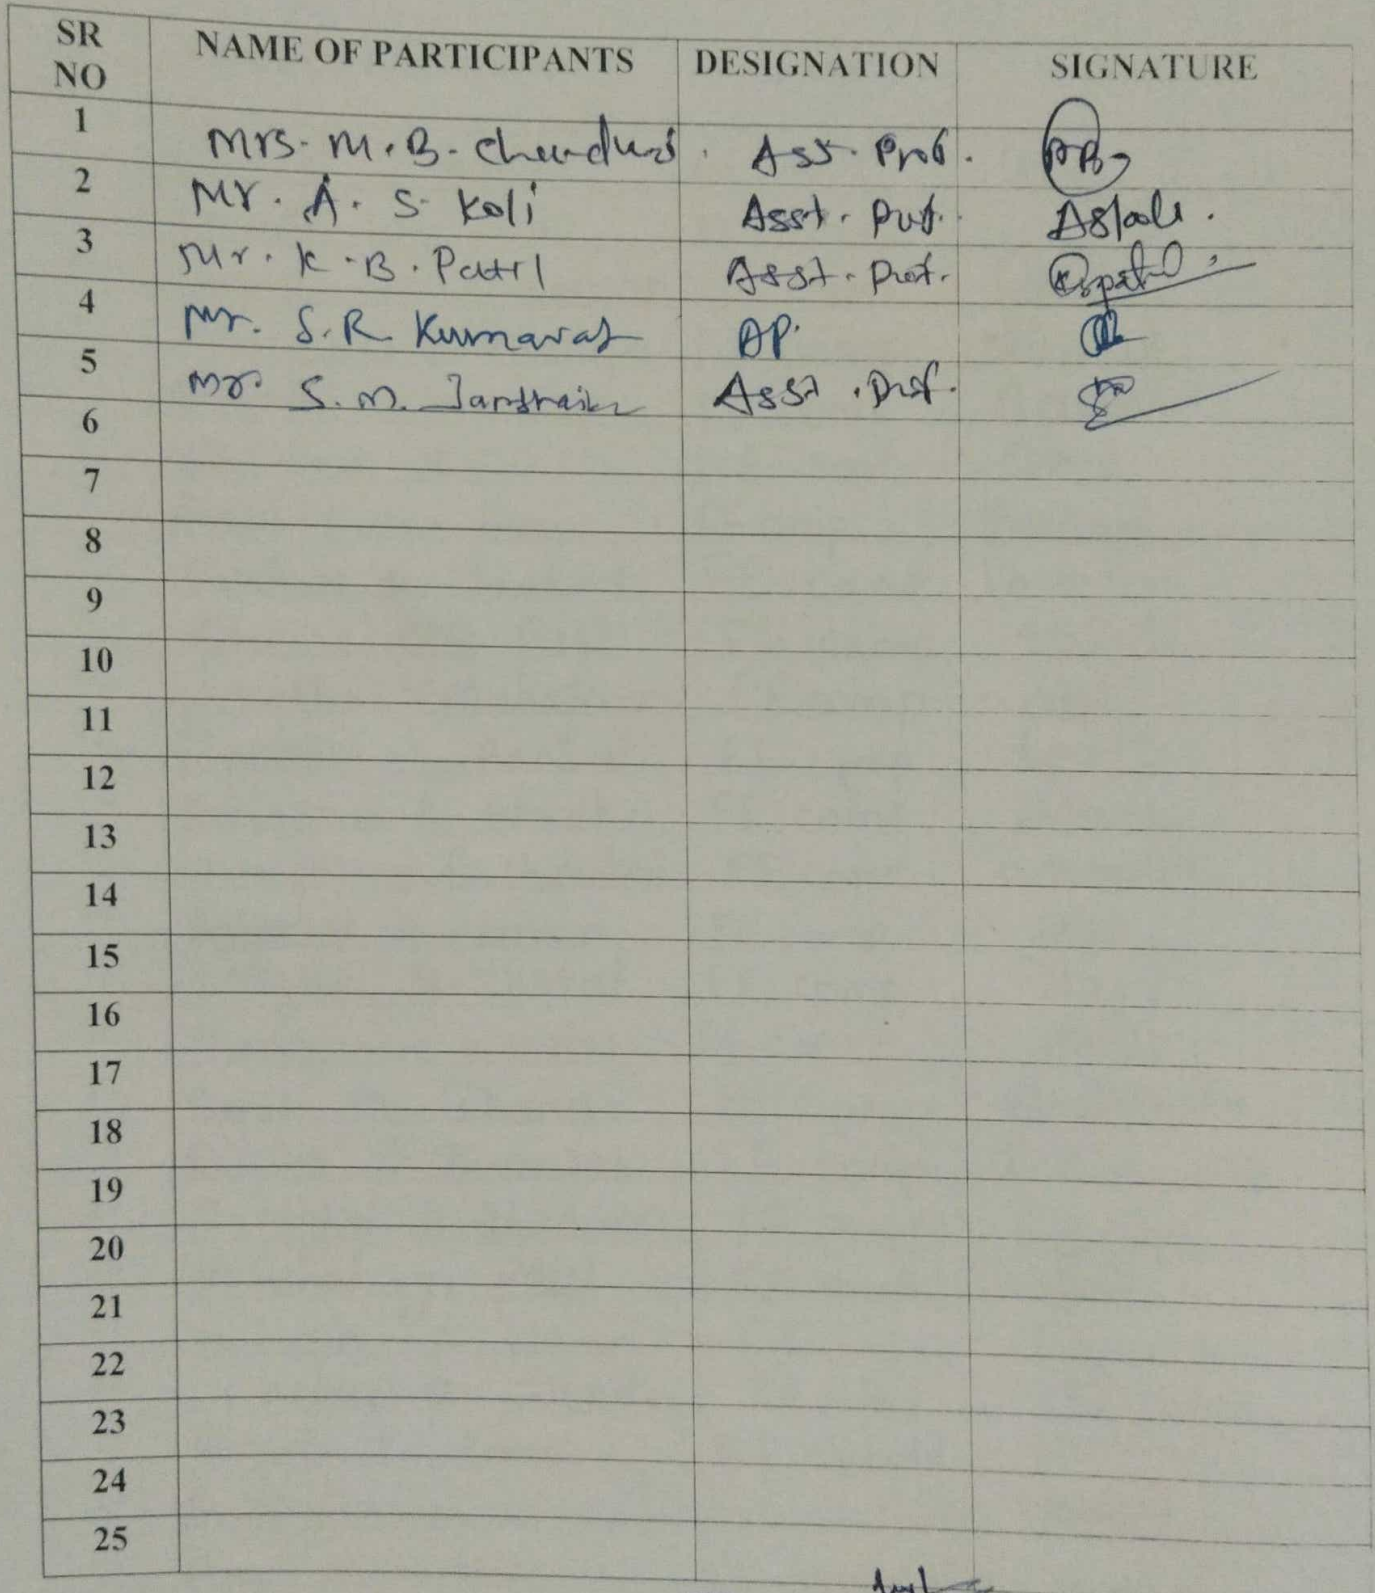 SR NO NAME OF PARTICIPANTS DESIGNATION SIGNATURE
1 Mrs. M. B. Asst. Prof.
2 Mr. A. S. Koli Asst. Prof.
3 Mr. K. B. Patil Asst. Prof.
4 Mr. S. R. AP.
5 Mr. S. M. Asst. Prof.
6
7
8
9
10
11
12
13
14
15
16
17
18
19
20
21
22
23
24
25